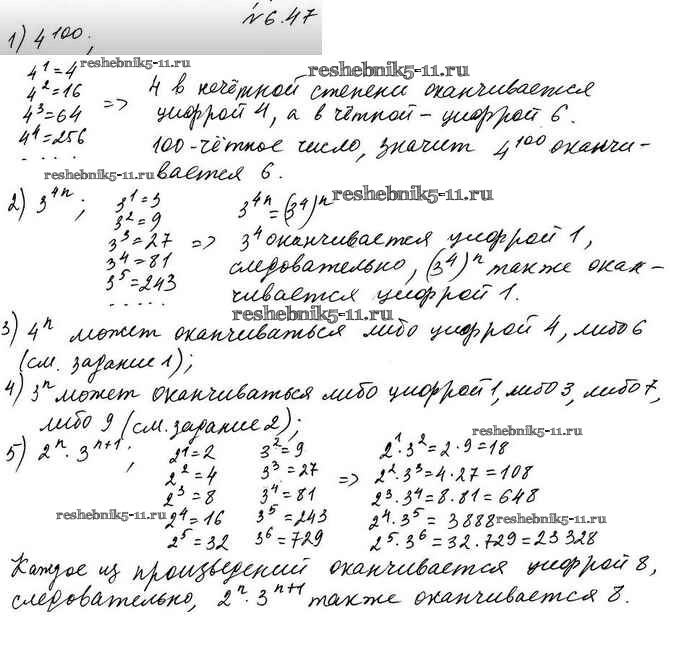 №6.47
1) 4^100;
reshebnik5-11.ru
reshebnik5-11.ru
4^1=4
4^2=16
4^3=64
4^4=256
....
=> 4 в нечётной степени оканчивается
цифрой 4, а в чётной – цифрой 6.
100-чётное число, значит 4^100 оканчи-
вается 6.
reshebnik5-11.ru
2) 3^4n;
3^1=3
3^2=9
3^3=27
3^4=81
3^5=243
.....
=>
3^4n=(3^4)^n
reshebnik5-11.ru
3^4 оканчивается цифрой 1,
следовательно, (3^4)^n также окан-
чивается цифрой 1.
reshebnik5-11.ru
3) 4^n может оканчиваться либо цифрой 4, либо 6
(см. задание 1);
4) 3^n может оканчиваться либо цифрой 1, либо 3, либо 7,
либо 9 (см. задание 2);
reshebnik5-11.ru
5) 2^n · 3^n+1;
2^1=2
2^2=4
2^3=8
2^4=16
2^5=32
3^2=9
3^3=27
3^4=81
3^5=243
3^6=729
=>
2^1·3^2=2·9=18
2^2·3^3=4·27=108
2^3·3^4=8·81=648
2^4·3^5=3888
2^5·3^6=32·729=23328
reshebnik5-11.ru
reshebnik5-11.ru
Каждое из произведений оканчивается цифрой 8,
следовательно, 2^n·3^n+1 также оканчивается 8.